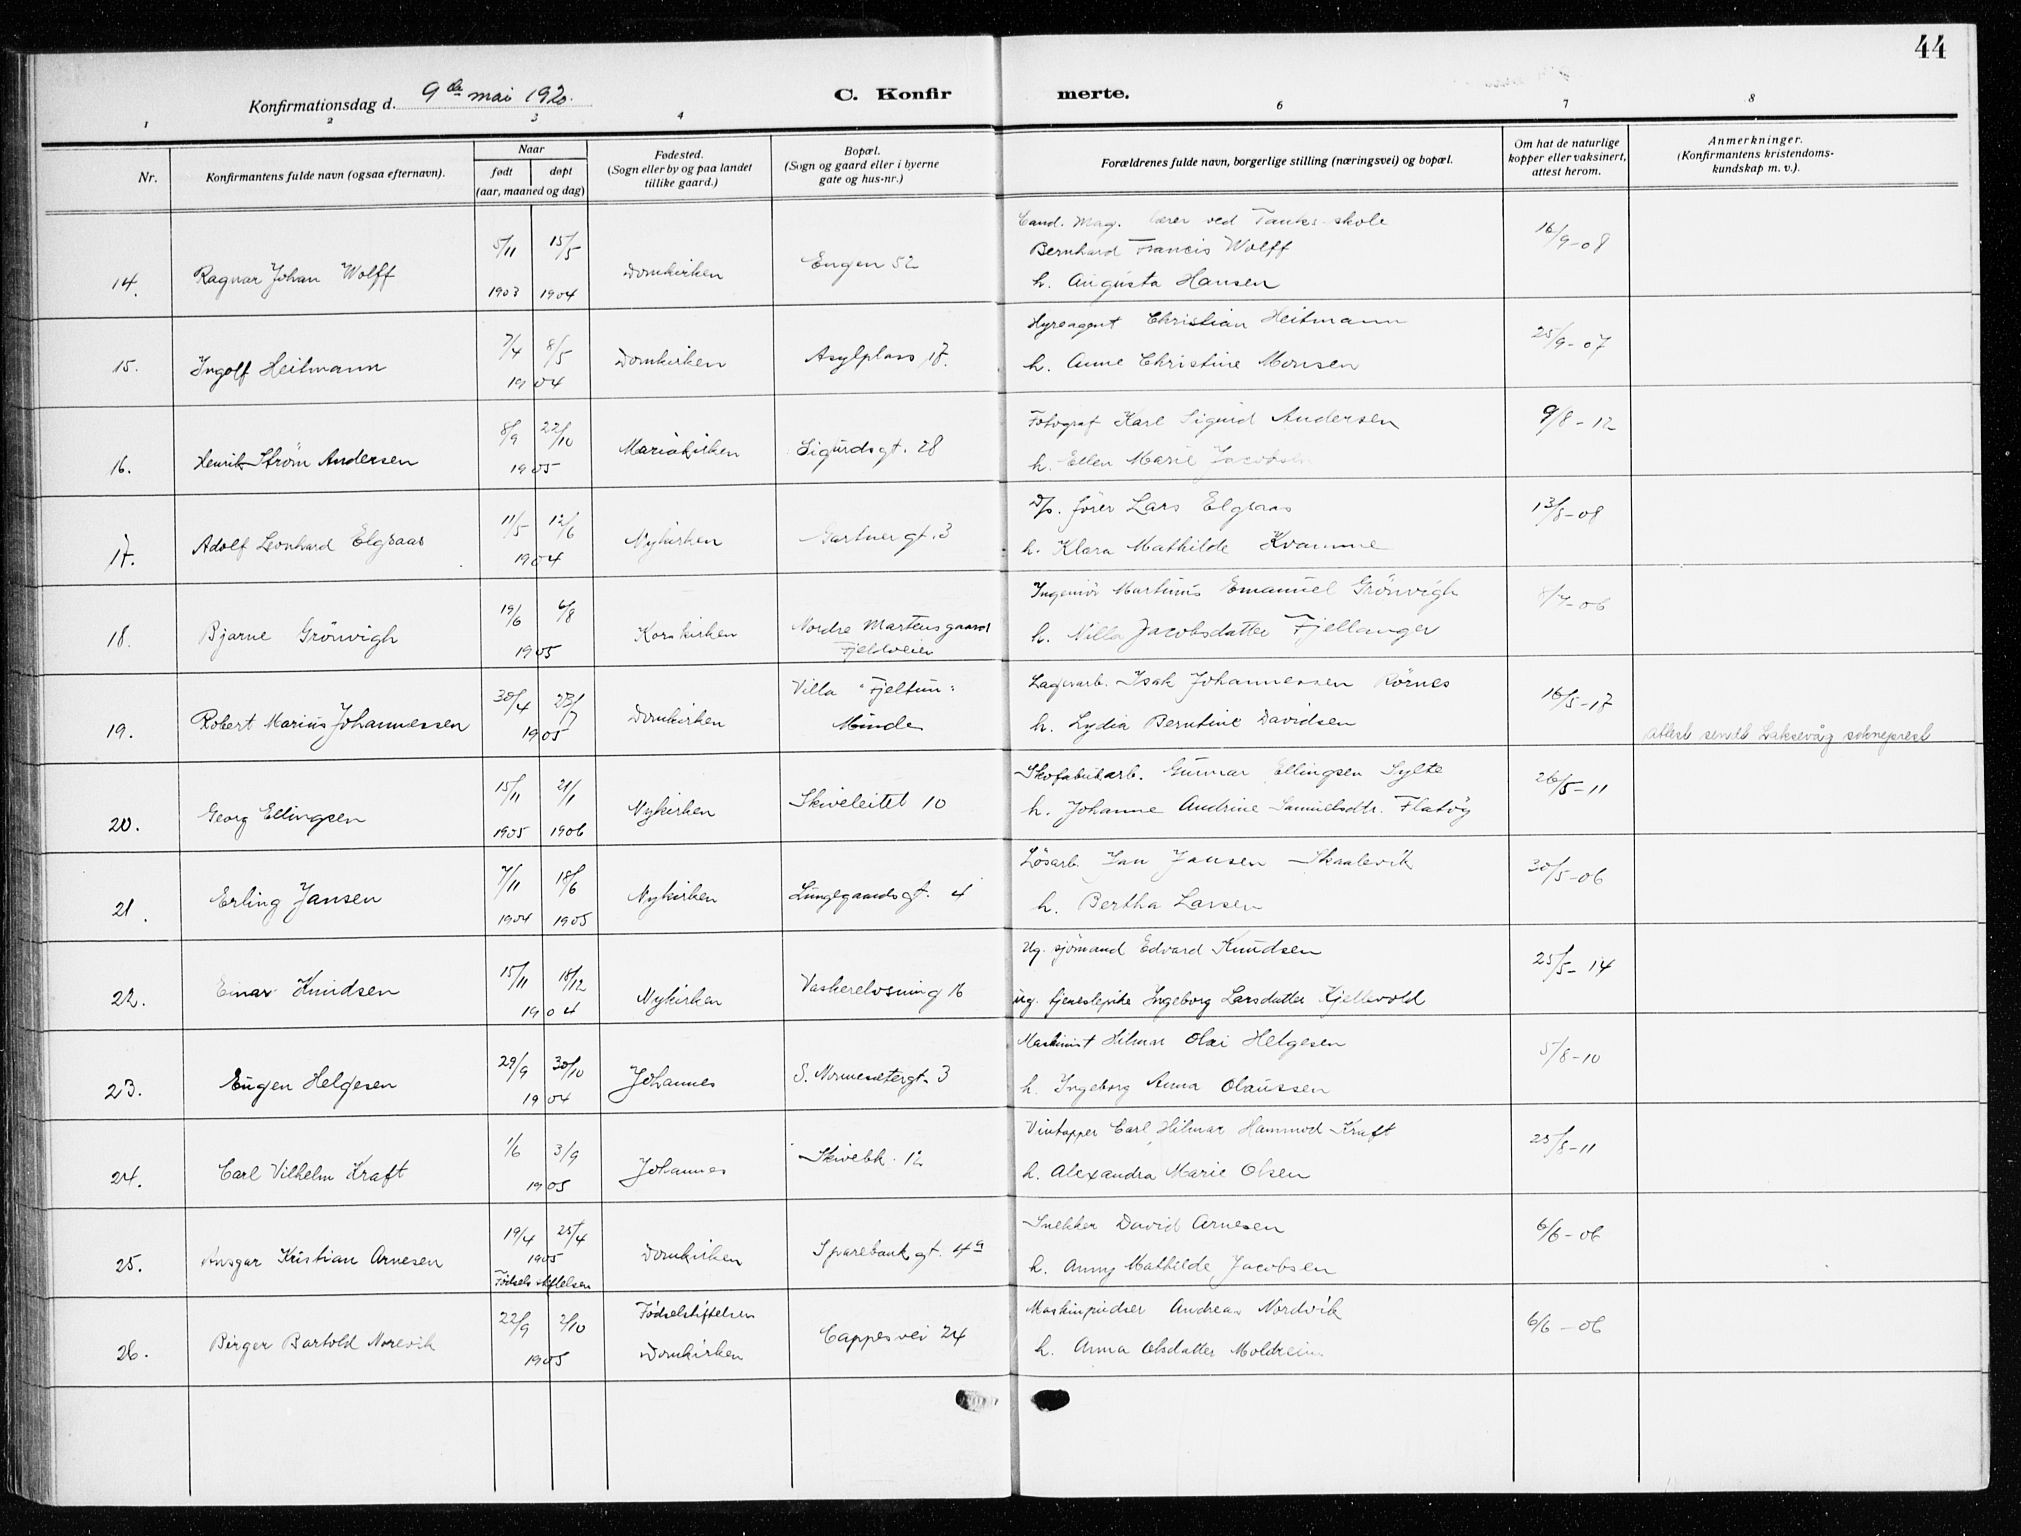 44
Konfirmationsdag d. 9de mai 1920.
C. Konfirmerte.
1 2 3 4 6 7 8
Nr.
Konfirmantens fulde navn (ogsaa efternavn).
Naar
født døpt
(aar, maaned og dag)
Fødested.
(Sogn eller by og paa landet
tillike gaard.)
Bopæl.
(Sogn og gaard eller i byerne
gate og hus-nr.)
Forældrenes fulde navn, borgerlige stilling (næringsvei) og bopæl.
Om hat de naturlige
kopper eller vaksinert,
attest herom.
Anmerkninger.
(Konfirmantens kristendoms-
kundskap m. v.).
Cand. mag. lærer ved Tanks skole
5/11 15/5 Bernhard Francis Wolff 16/9-08
14. Ragnar Johan Wolff 1903 1904 Domkirken Engen 52 h. Augusta Hansen
7/4 8/5 Hyreagent Christian Heitmann 25/9-07
15. Ingolf Heitmann 1904 Domkirken Asylplass 17. h. Anne Christine Monsen
8/9 22/10 Fotograf Karl Sigurd Andersen 9/8-12
16. Henrik Strøm Andersen 1905 Mariakirken Sigurdsgt. 28 h. Ellen Marie Jacobsen
11/5 12/6 D/s. fører Lars Elgsaas 13/8-08
17. Adolf Leonhard Elgsaas 1904 Nykirken Gartnergt. 3 h. Klara Mathilde Kvamme
19/6 6/8 Ingeniør Martinus Emanuel Grönvigh 8/7-06
18. Bjarne Grönvigh 1905 Korskirken Nordre Martensgaard h. Nilla Jacobsdatter Fjellanger
Fjeldveien
30/4 23/7 Villa "Fjeltun" Lagerarb. Isak Johannessen Rörnes 16/5-17
19. Robert Marius Johannessen 1905 Domkirken Minde h. Lydia Berntine Davidsen Attest sendt Laksevåg sokneprest
15/11 21/1 Skofabrikarb. Gunnar Ellingsen Sylte 26/5-11
20. Georg Ellingsen 1905 1906 Nykirken Skiveleitet 10 h. Johanne Andrine Samuelsdtr. Flatöy
7/11 18/6 Løsarb. Jan Jansen Skaalevik 30/5-06
21. Erling Jansen 1904 1905 Nykirken Lungegaardsgt. 4 h. Bertha Larsen
15/11 18/12 Ug. sjömand Edvard Knudsen 25/5-14
22. Einar Knudsen 1904 Nykirken Vaskerelvsning 16 ug. tjenestepike Ingeborg Larsdatter Kjellevold
29/9 30/10 Maskinist Hilmar Olai Helgesen 5/8-10
23. Eugen Helgesen 1904 Johannes S. Nornesetergt. 3 h. Ingeborg Anna Olaussen
1/6 3/9 Vintapper Carl Hilmar Hammod Kraft 25/8-11
24. Carl Vilhelm Kraft 1905 Johannes Skivebk. 12 h. Alexandra Marie Olsen
19/4 25/4 Snekker David Arnesen 6/6-06
25. Ansgar Kristian Arnesen 1905 Domkirken Sparebankgt. 4a h. Anny Mathilde Jacobsen
Fødselsstiftelsen
22/9 2/10 Födselstiftelsen Maskinpudser Andreas Nordvik 6/6-06
26. Birger Bartold Norevik 1905 Domkirken Cappesvei 24 h. Anna Olsdatter Moldreim